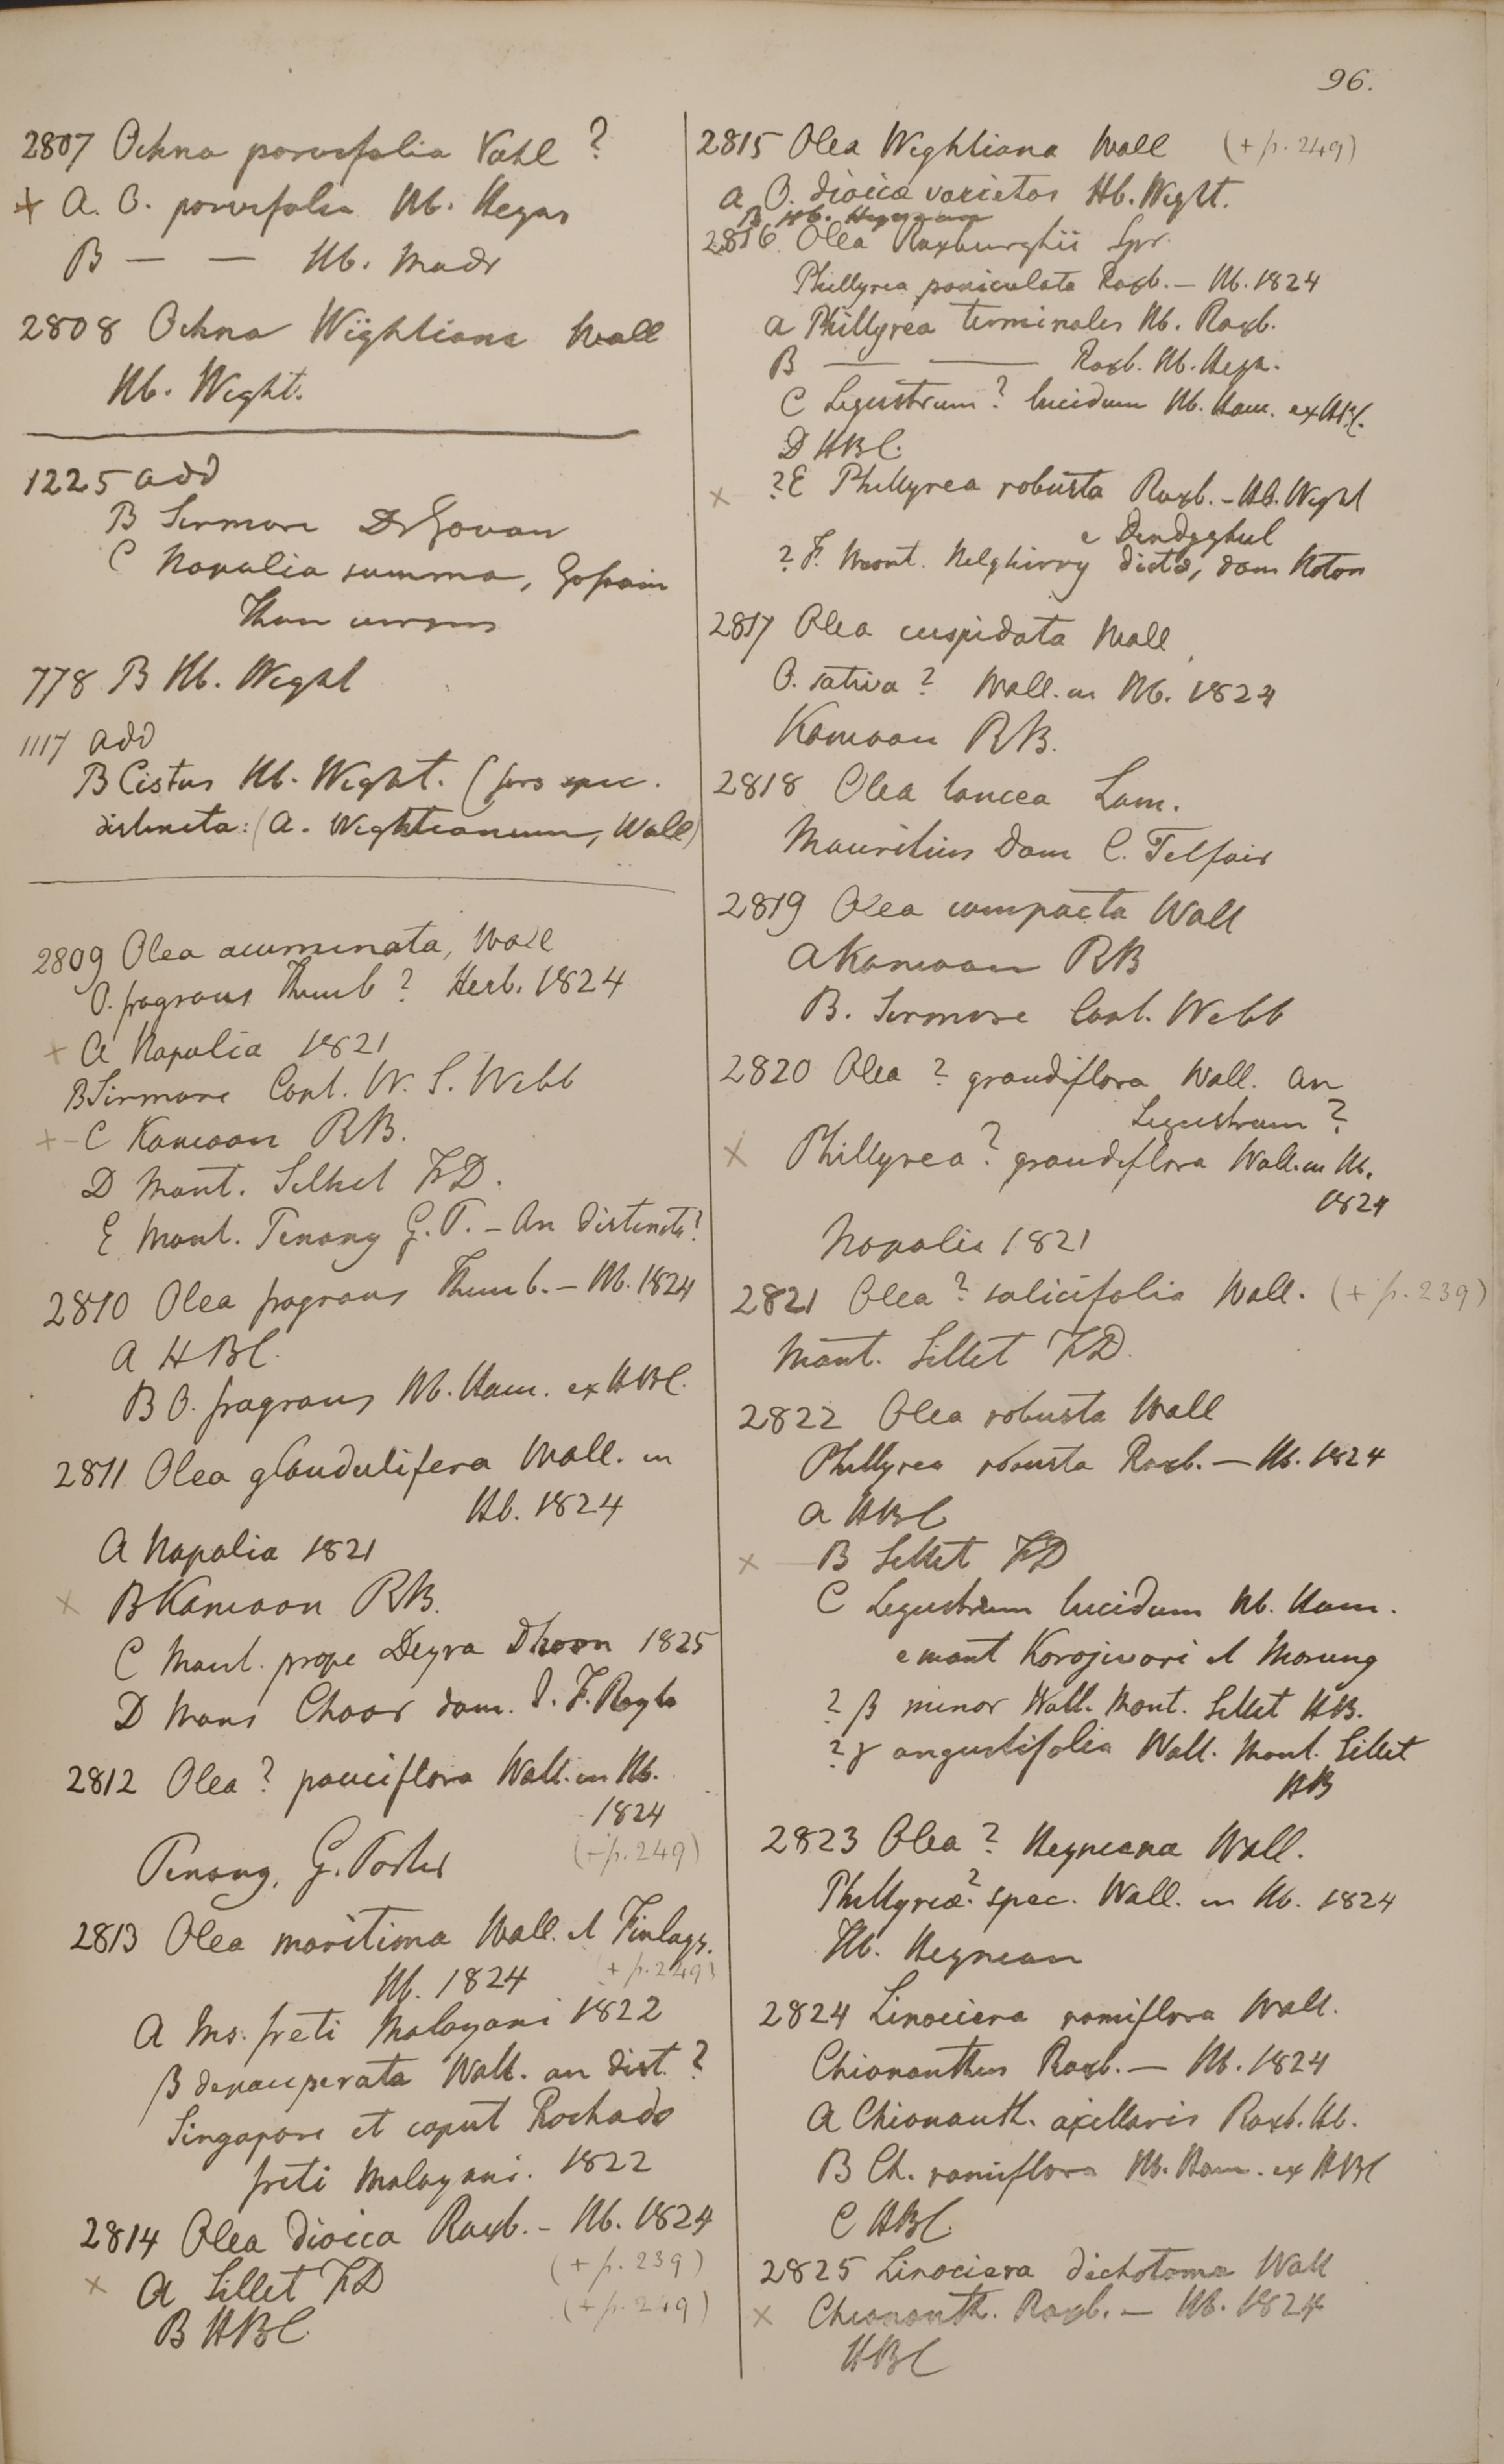 96.
2807 Ochna parvifolia Vahl ?
+ A. O. parvifolia Hb. Heyn
B — — Hb. Madr
2808 Ochna Wightiana Wall
Hb. Wight.
1225 add
B Sirmore Dr Govan
C Napalia summa, Gossain
Than versus
778 B Hb. Wight
1117 add
B Cistus Hb. Wight. (fors spec.
distincta: (A. Wightianum, Wall)
2809 Olea acuminata, Wall
O. fragrans Thunb ? Herb. 1824
x A Napalia 1821
B Sirmore Capt. W. S. Webb
x - C Kamaon RB.
D Mont. Sillet FD.
E Mont. Penang G. P. – An distincta ?
2810 Olea fragrans Thunb. – Hb. 1824
A HBC.
B O. fragrans Hb. Ham. ex HBC.
2811 Olea glandulifera Wall. in
Hb. 1824
A Napalia 1821
x B Kamaon RB.
C Mont. prope Deyra Dhoon 1825
D Mons Choor dom. J. F. Royle
2812 Olea ? pauciflora Wall. in Hb.
1824
(+ p. 249)
Penang, G. Porter
2813 Olea maritima Wall. et Finlays.
Hb. 1824 (+ p. 249)
A Ins. freti Malayani 1822
β depauperata Wall. an dist. ?
Singapore et caput Rachado
freti Malayani. 1822
2814 Olea dioica Roxb. – Hb. 1824
(+ p. 239)
x A Sillet FD
(+ p. 249)
B HBC.
2815 Olea Wightiana Wall (+ p. 249)
a O. dioica varietas Hb. Wight.
B Hb. Heynean
2816 Olea Roxburghii Spr.
Phillyrea paniculata Roxb. – Hb. 1824
a Phillyrea terminales Hb. Roxb.
B — — Roxb. Hb. Heyn.
C Ligustrum ? lucidum Hb. Ham. ex HBC.
D HBC.
x ?E Phillyrea robusta Roxb. – Hb. Wight
e Dendyghul
? F. Mont. Nelghirry dictis, dom Noton
2817 Olea cuspidata Wall
O. sativa ? Wall. in Hb. 1824
Kamaon RB.
2818 Olea lancea Lam.
Mauritius dom C. Telfair
2819 Olea compacta Wall
A Kamaon RB
B. Sirmore Capt. Webb
2820 Olea ? grandiflora Wall. an
Ligustrum ?
x Phillyrea ? grandiflora Wall. in Hb.
1824
Napalia 1821
2821 Olea ? salicifolia Wall. (+ p. 239)
Mont. Sillet FD.
2822 Olea robusta Wall
Phillyrea robusta Roxb. — Hb. 1824
a HBC
x — B Sillet FD
C Ligustrum lucidum Hb. Ham.
e mont Korojuvari et Morung
? β minor Wall. Mont. Sillet HB.
? γ angustifolia Wall. Mont. Sillet
HB
2823 Olea ? Heyneana Wall.
Phillyrea ? spec. Wall. in Hb. 1824
Hb. Heynean
2824 Linociera ramiflora Wall.
Chionanthus Roxb. — Hb. 1824
A Chionanth. axillaris Roxb. Hb.
B Ch. ramiflora Hb. Ham. ex HBC
C HBC.
2825 Linociera dichotoma Wall
x Chionanth. Roxb. — Hb. 1824
HBC